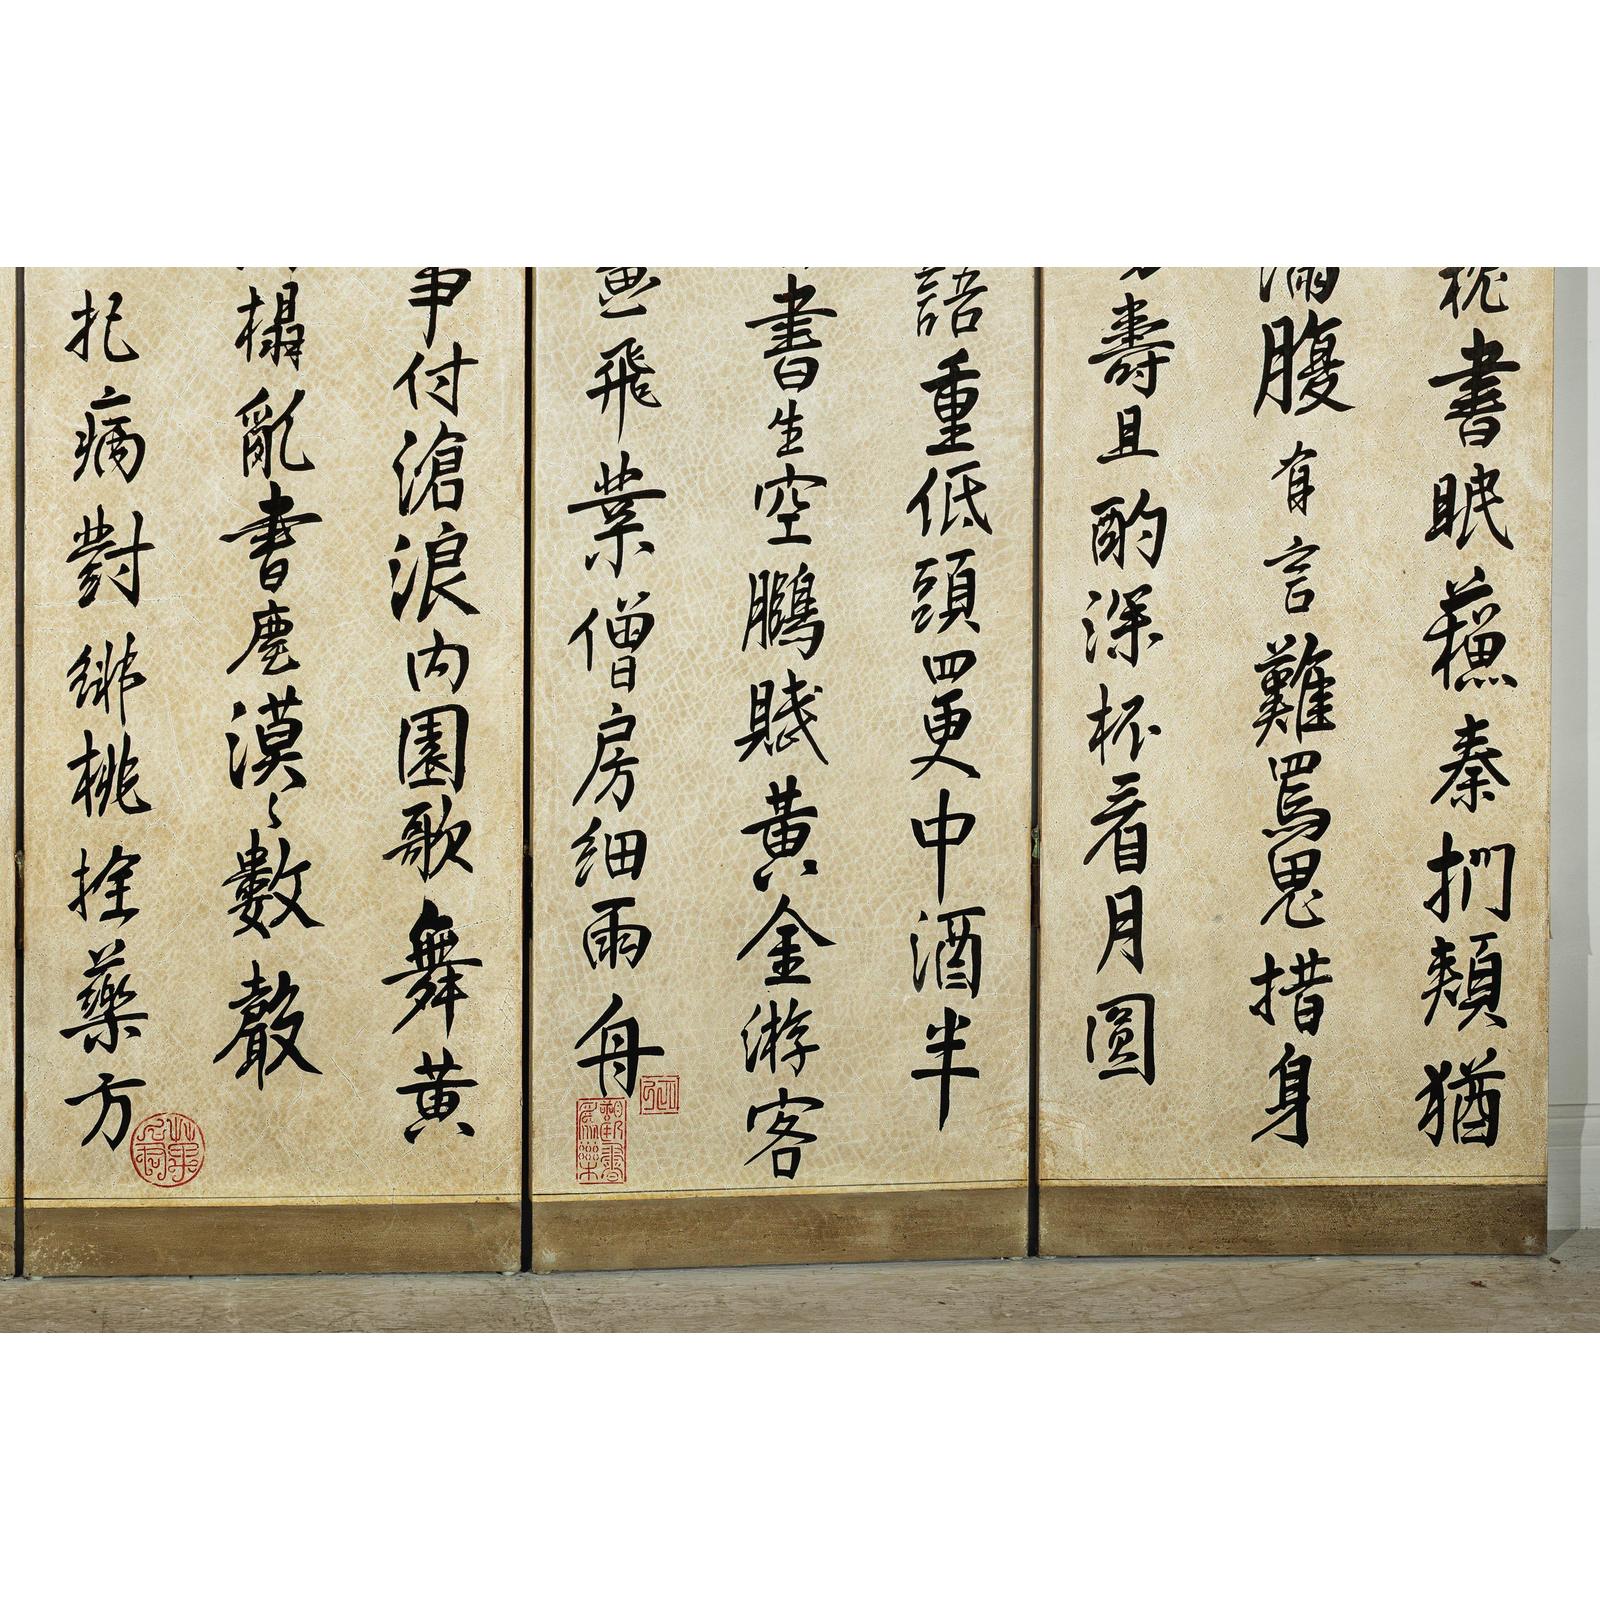 書眠蘓秦捫頰猶
滿腹有言難罵鬼措身
壽且酌深杯看月圓
語重低頭四更中酒半
書生空鵬賦黃金游客
飛葉僧房細雨舟
事付滄浪內園歌舞黃
榻亂書塵漠〻數聲
病對緋桃拴藥方